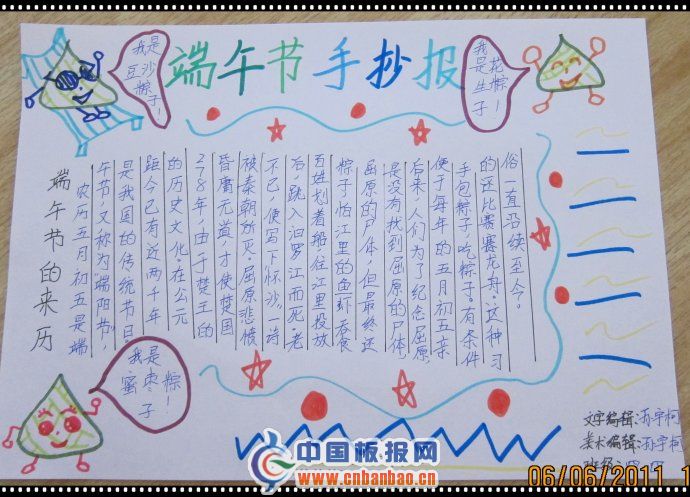 端午节手抄报
我是
豆沙
粽子!
我是花生粽子!
端午节的来历
农历五月初五是端
午节,又称为端阳节,
是我国的传统节日
距今已有近两千年
的历史文化。在公元
278年,由于楚王的
昏庸无道,才使楚国
被秦朝所灭。屈原悲愤
不已,便写下怀沙一诗
后,跳入汨罗江而死。老
百姓划着船往江里投放
粽子,怕江里的鱼虾吞食
屈原的尸体,但最终还
是没有找到屈原的尸体
后来,人们为了纪念屈原
便于每年的五月初五亲
手包粽子、吃粽子。有条件
的还比赛赛龙舟。这种习
俗一直沿续至今。
我是蜜枣粽子!
文字编辑:孙宇柯
美术编辑:孙宇柯
中国板报网
www.cnbanbao.cn
06/06/2011